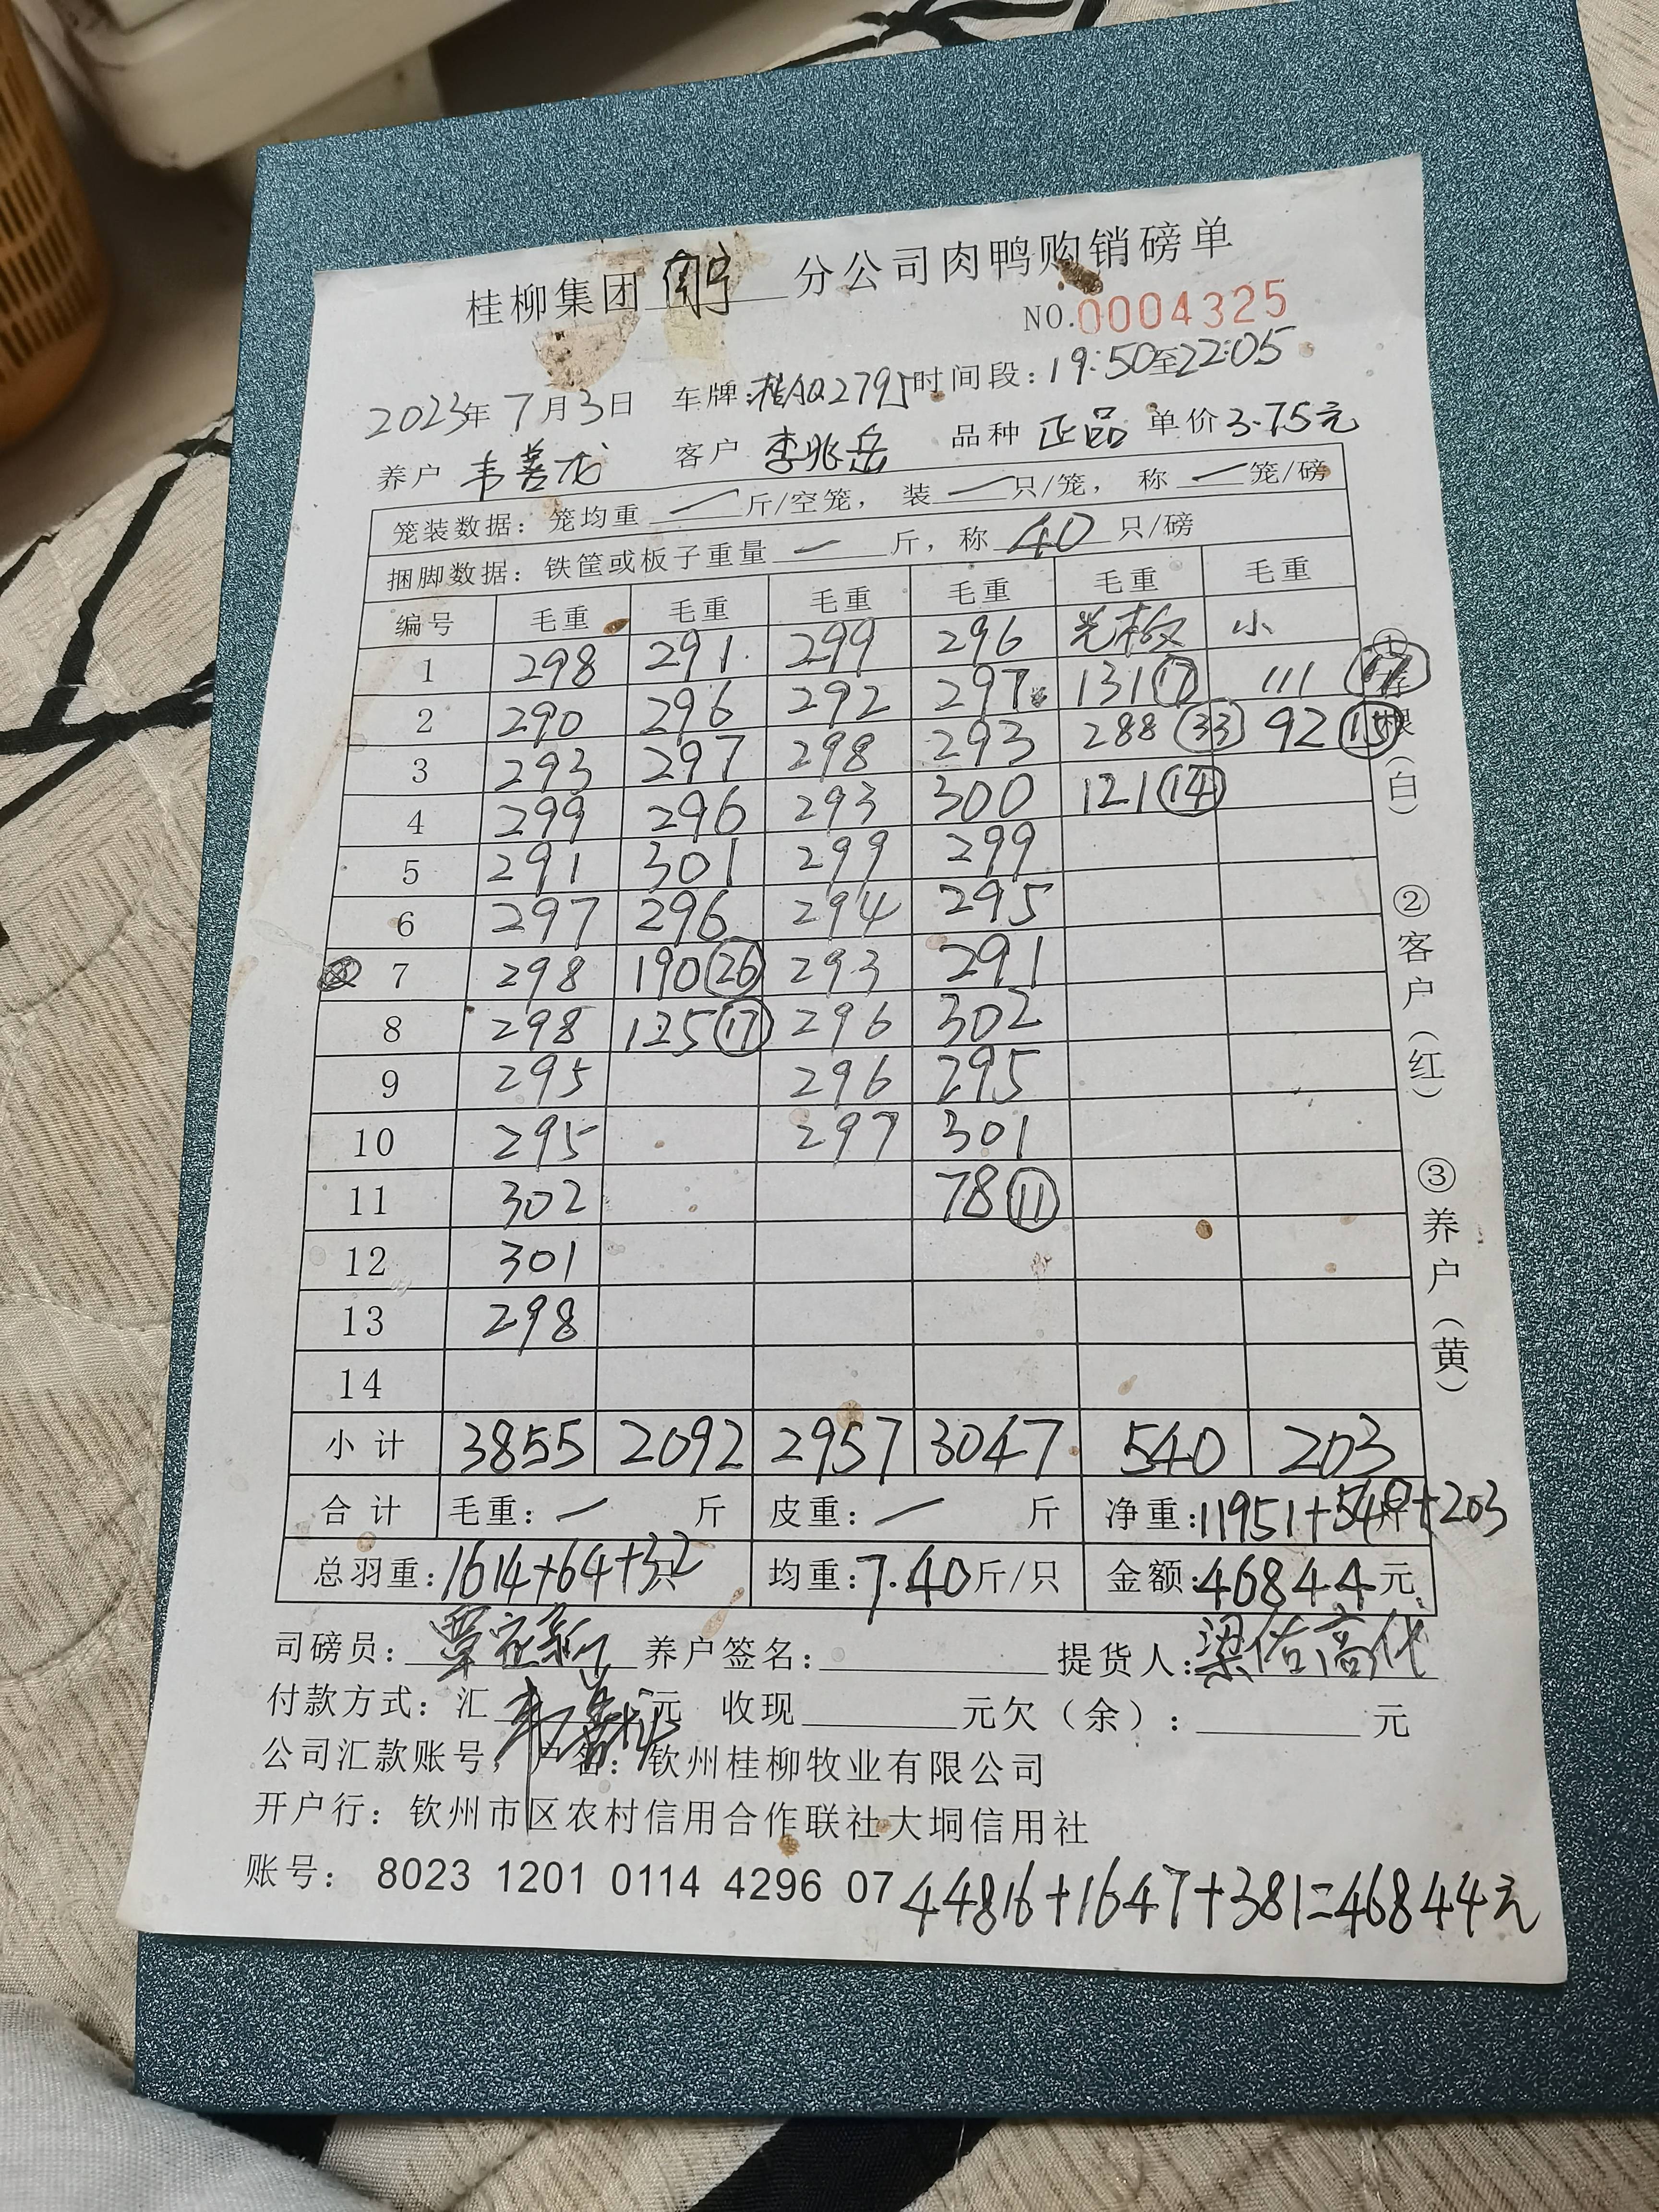 桂柳集团 南宁 分公司肉鸭购销磅单
NO.0004325
2023年 7月3日 车牌:桂AQ2795 时间段:19:50至22:05
养户 韦善龙 客户 李兆岳 品种 正品 单价3.75元
笼装数据: 笼均重 一 斤/空笼, 装 一 只/笼, 称 一 笼/磅
捆脚数据: 铁筐或板子重量 一 斤, 称 40 只/磅
编号 毛重 毛重 毛重 毛重 毛重 毛重
光板 小
1 298 291 299 296 131⑰ 111
2 290 296 292 297 288㉝ 92⑮
3 293 297 298 293 121⑭
4 299 296 293 300
5 291 301 299 299
6 297 296 294 295
7 298 190㉖ 293 291
8 298 125⑰ 296 302
9 295 296 295
10 295 297 301
11 302 78⑪
12 301
13 298
14
小计 3855 2092 2957 3047 540 203
合计 毛重: 一 斤 皮重: 一 斤 净重:11951+540+203
总羽重:1614+64+32只 均重:7.40斤/只 金额:46844元
司磅员: 覃 养户签名: 提货人:梁佑高代
付款方式: 汇 韦善龙 元 收现 元欠(余): 元
公司汇款账号, 户名: 钦州桂柳牧业有限公司
开户行: 钦州市区农村信用合作联社大垌信用社
账号: 8023 1201 0114 4296 07
44816+1647+381=46844元
①存根(白)
②客户(红)
③养户(黄)